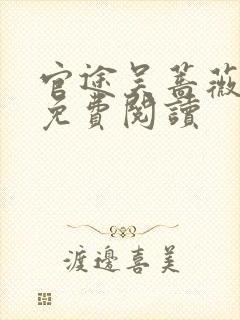 官途吴蔷薇
免費閱讀
渡邊喜美